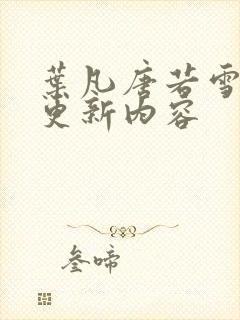 葉凡唐若雪
更新内容
叁啼